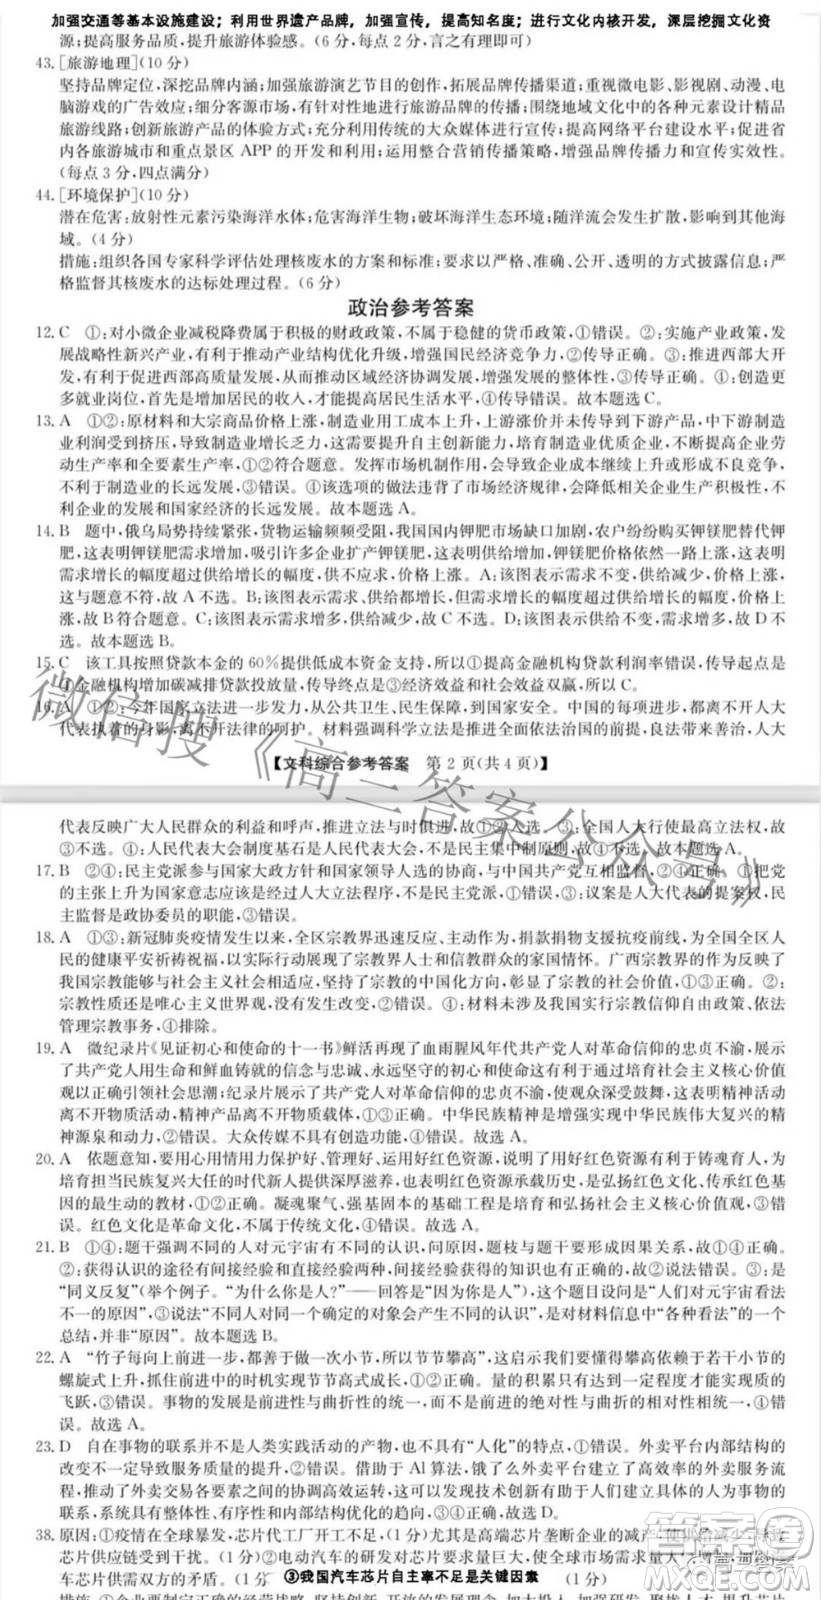 加强交通等基本设施建设；利用世界遗产品牌，加强宣传，提高知名度；进行文化内核开发，深层挖掘文化资
源；提高服务品质，提升旅游体验感。(6 分，每点 2 分，言之有理即可)
43. [旅游地理](10 分)
坚持品牌定位，深挖品牌内涵；加强旅游演艺节目的创作，拓展品牌传播渠道；重视微电影、影视剧、动漫、电
脑游戏的广告效应；细分客源市场，有针对性地进行旅游品牌的传播；围绕地域文化中的各种元素设计精品
旅游线路；创新旅游产品的体验方式；充分利用传统的大众媒体进行宣传；提高网络平台建设水平；促进省
内各旅游城市和重点景区 APP 的开发和利用；运用整合营销传播策略，增强品牌传播力和宣传实效性。
(每点 3 分，四点满分)
44. [环境保护](10 分)
潜在危害：放射性元素污染海洋水体；危害海洋生物；破坏海洋生态环境；随洋流会发生扩散，影响到其他海
域。(4 分)
措施：组织各国专家科学评估处理核废水的方案和标准；要求以严格、准确、公开、透明的方式披露信息；严
格监督其核废水的达标处理过程。(6 分)
政治参考答案
12. C ①：对小微企业减税降费属于积极的财政政策，不属于稳健的货币政策，①错误。②：实施产业政策，发
展战略性新兴产业，有利于推动产业结构优化升级，增强国民经济竞争力，②传导正确。③：推进西部大开
发，有利于促进西部高质量发展，从而推动区域经济协调发展，增强发展的整体性，③传导正确。④：创造更
多就业岗位，首先是增加居民的收入，才能提高居民生活水平，④传导错误。故本题选 C。
13. A ①②：原材料和大宗商品价格上涨，制造业用工成本上升，上游涨价并未传导到下游产品，中下游制造
业利润受到挤压，导致制造业增长乏力，培育自主创新能力，培育制造业优质企业，不断提高企业劳
动生产率和全要素生产率，①②符合题意。发挥市场机制作用，会导致企业成本继续上升或形成不良竞争，
不利于制造业的长远发展，③错误。④该选项的做法违背了市场经济规律，会降低相关企业生产积极性，不
利于制造业的发展和国家经济的长远发展。故本题选 A。
14. B 题中，俄乌局势持续紧张，货物运输频频受阻，我国国内钾肥市场缺口加剧，农户纷纷购买钾镁肥替代钾
肥，这表明钾镁肥需求增加，吸引许多企业扩产钾镁肥，这表明供给增加，钾镁肥价格依然一路上涨，这表明
需求增长的幅度超过供给增长的幅度，供不应求，价格上涨。A：该图表示需求不变，供给减少，价格上涨，
这与题意不符，故 A 不选。B：该图表示需求、供给均增加，但需求增长的幅度超过供给增长的幅度，价格上
涨，故 B 符合题意。C：该图表示需求增多，供给减少，故 C 不选。D：该图表示供给不变，需求增多，故 D 不
选。故本题选 B。
15. C 该工具按照贷款本金的 60%提供低成本资金支持，所以①提高金融机构贷款利润率错误，传导起点是
④金融机构增加碳减排贷款投放量，传导终点是③经济效益和社会效益双赢，所以 C。
16. A ①②：今年国家立法进一步发力，从公共卫生、民生保障，到国家安全。中国的每一项进步，都离不开人大
代表扶着的身影，离不开法律的呵护。材料强调科学立法是推进全面依法治国的前提，良法带来善治，人大
【文科综合参考答案 第 2 页(共 4 页)】
代表反映广大人民群众的利益和呼声，推进立法与时俱进，故①②入选。③：全国人大行使最高立法权，故
③不选。④：人民代表大会制度基石是人民代表大会，不是民主集中制原则，故④不选。故选 A。
17. B ②④：民主党派参与国家大政方针和国家领导人选的协商，与中国共产党互相监督，②④正确。①：把党
的主张上升为国家意志应该是经过人大立法程序，不是民主党派，①错误。③：议案是人大代表的提案权，民
主监督是政协委员的职能，③错误。
18. A ①③：新冠肺炎疫情发生以来，全区宗教界迅速反应、主动作为，捐款捐物支援抗疫前线，为全国全区人
民的健康平安祈祷祝福，以实际行动展现了宗教界人士和信教群众的家国情怀。广西宗教界的作为反映了
我国宗教能够与社会主义社会相适应，坚持了宗教的中国化方向，彰显了宗教的社会价值，①③正确。②：
宗教性质还是唯心主义世界观，没有发生改变，②错误。④：材料未涉及我国实行宗教信仰自由政策、依法
管理宗教事务，④排除。
19. A 微纪录片《见证初心和使命的十一书》鲜活再现了血雨腥风年代共产党人对革命信仰的忠贞不渝，展示
了共产党人用生命和鲜血铸就的信念与忠诚、永远坚守的初心和使命，有利于通过培育社会主义核心价值
观以正确引领社会思潮；纪录片展示了共产党人对革命信仰的忠贞不渝，使观众深受鼓舞，这表明精神活动
离不开物质活动，精神产品离不开物质载体，①③正确。中华民族精神是实现中华民族伟大复兴的精
神源泉和动力，②错误。大众传媒不具有创造功能，④错误。故选 A。
20. A 依题意知，要用心用情用力保护好、管理好、运用好红色资源，说明了用好红色资源有利于铸魂育人，为
培育担当民族复兴大任的时代新人提供深厚滋养，也表明红色资源承载历史，是弘扬红色文化、传承红色基
因的最生动的教材，①②正确。凝魂聚气、强基固本的基础工程是培育和弘扬社会主义核心价值观，③错
误。红色文化是革命文化，不属于传统文化，④错误。故选 A。
21. B ①④：题干强调不同的人对元宇宙有不同的认识，问原因，题枝与题干构成因果关系，故①④正确。
②：获得认识的途径有间接经验和直接经验两种，间接经验获得的认识也可能是正确的，②错误。③：是
“同义反复”(举个例子。“为什么你是人？”——回答是“因为你是人”)，这个题目设问是“人们对元宇宙看法
不一的原因”，③说法“不同人对同一个确定的对象会产生不同的认识”，是对材料信息中“各种看法”的一个
总结，并非“原因”。故本题选 B。
22. A “竹子每向上前进一步，都需要做一次小节，所以节节攀高”，这启示我们要懂得攀高依赖于若干小节的
螺旋式上升，抓住前进中的时机实现一次次飞跃，①②正确。量的积累只有达到一定程度才能实现质的
飞跃，③错误。事物的发展是前进性与曲折性的统一，而不是发展的绝对性与曲折的相对性的统一，④错误。
23. D 自在事物的联系并非人类实践活动的产物，也不具有“人化”的特点，①错误。外卖平台内部结构的
改变不一定导致服务质量的提升，②错误。借助于 AI 算法，饿了么外卖平台建立了高效的系统优化流程，
推动了外卖交易各要素之间的协调高效运转，这可以发现技术创新有助于以目的具体的人为事物的
联系，系统具有整体性、有序性和内部结构的优化的趋向，③④正确。故选 D。
38. 原因：①疫情在全球暴发，芯片代工厂开工不足，(1 分)尤其是高端芯片垄断企业的减产，使供给减少，导致
芯片供应链受到干扰。(1 分)②电动汽车的研发对芯片要求量巨大，
车芯片供需双方的矛盾。(1 分 ③我国汽车芯片自主率不足是关键因素 (1 分)
微信搜《高三答案公众号》